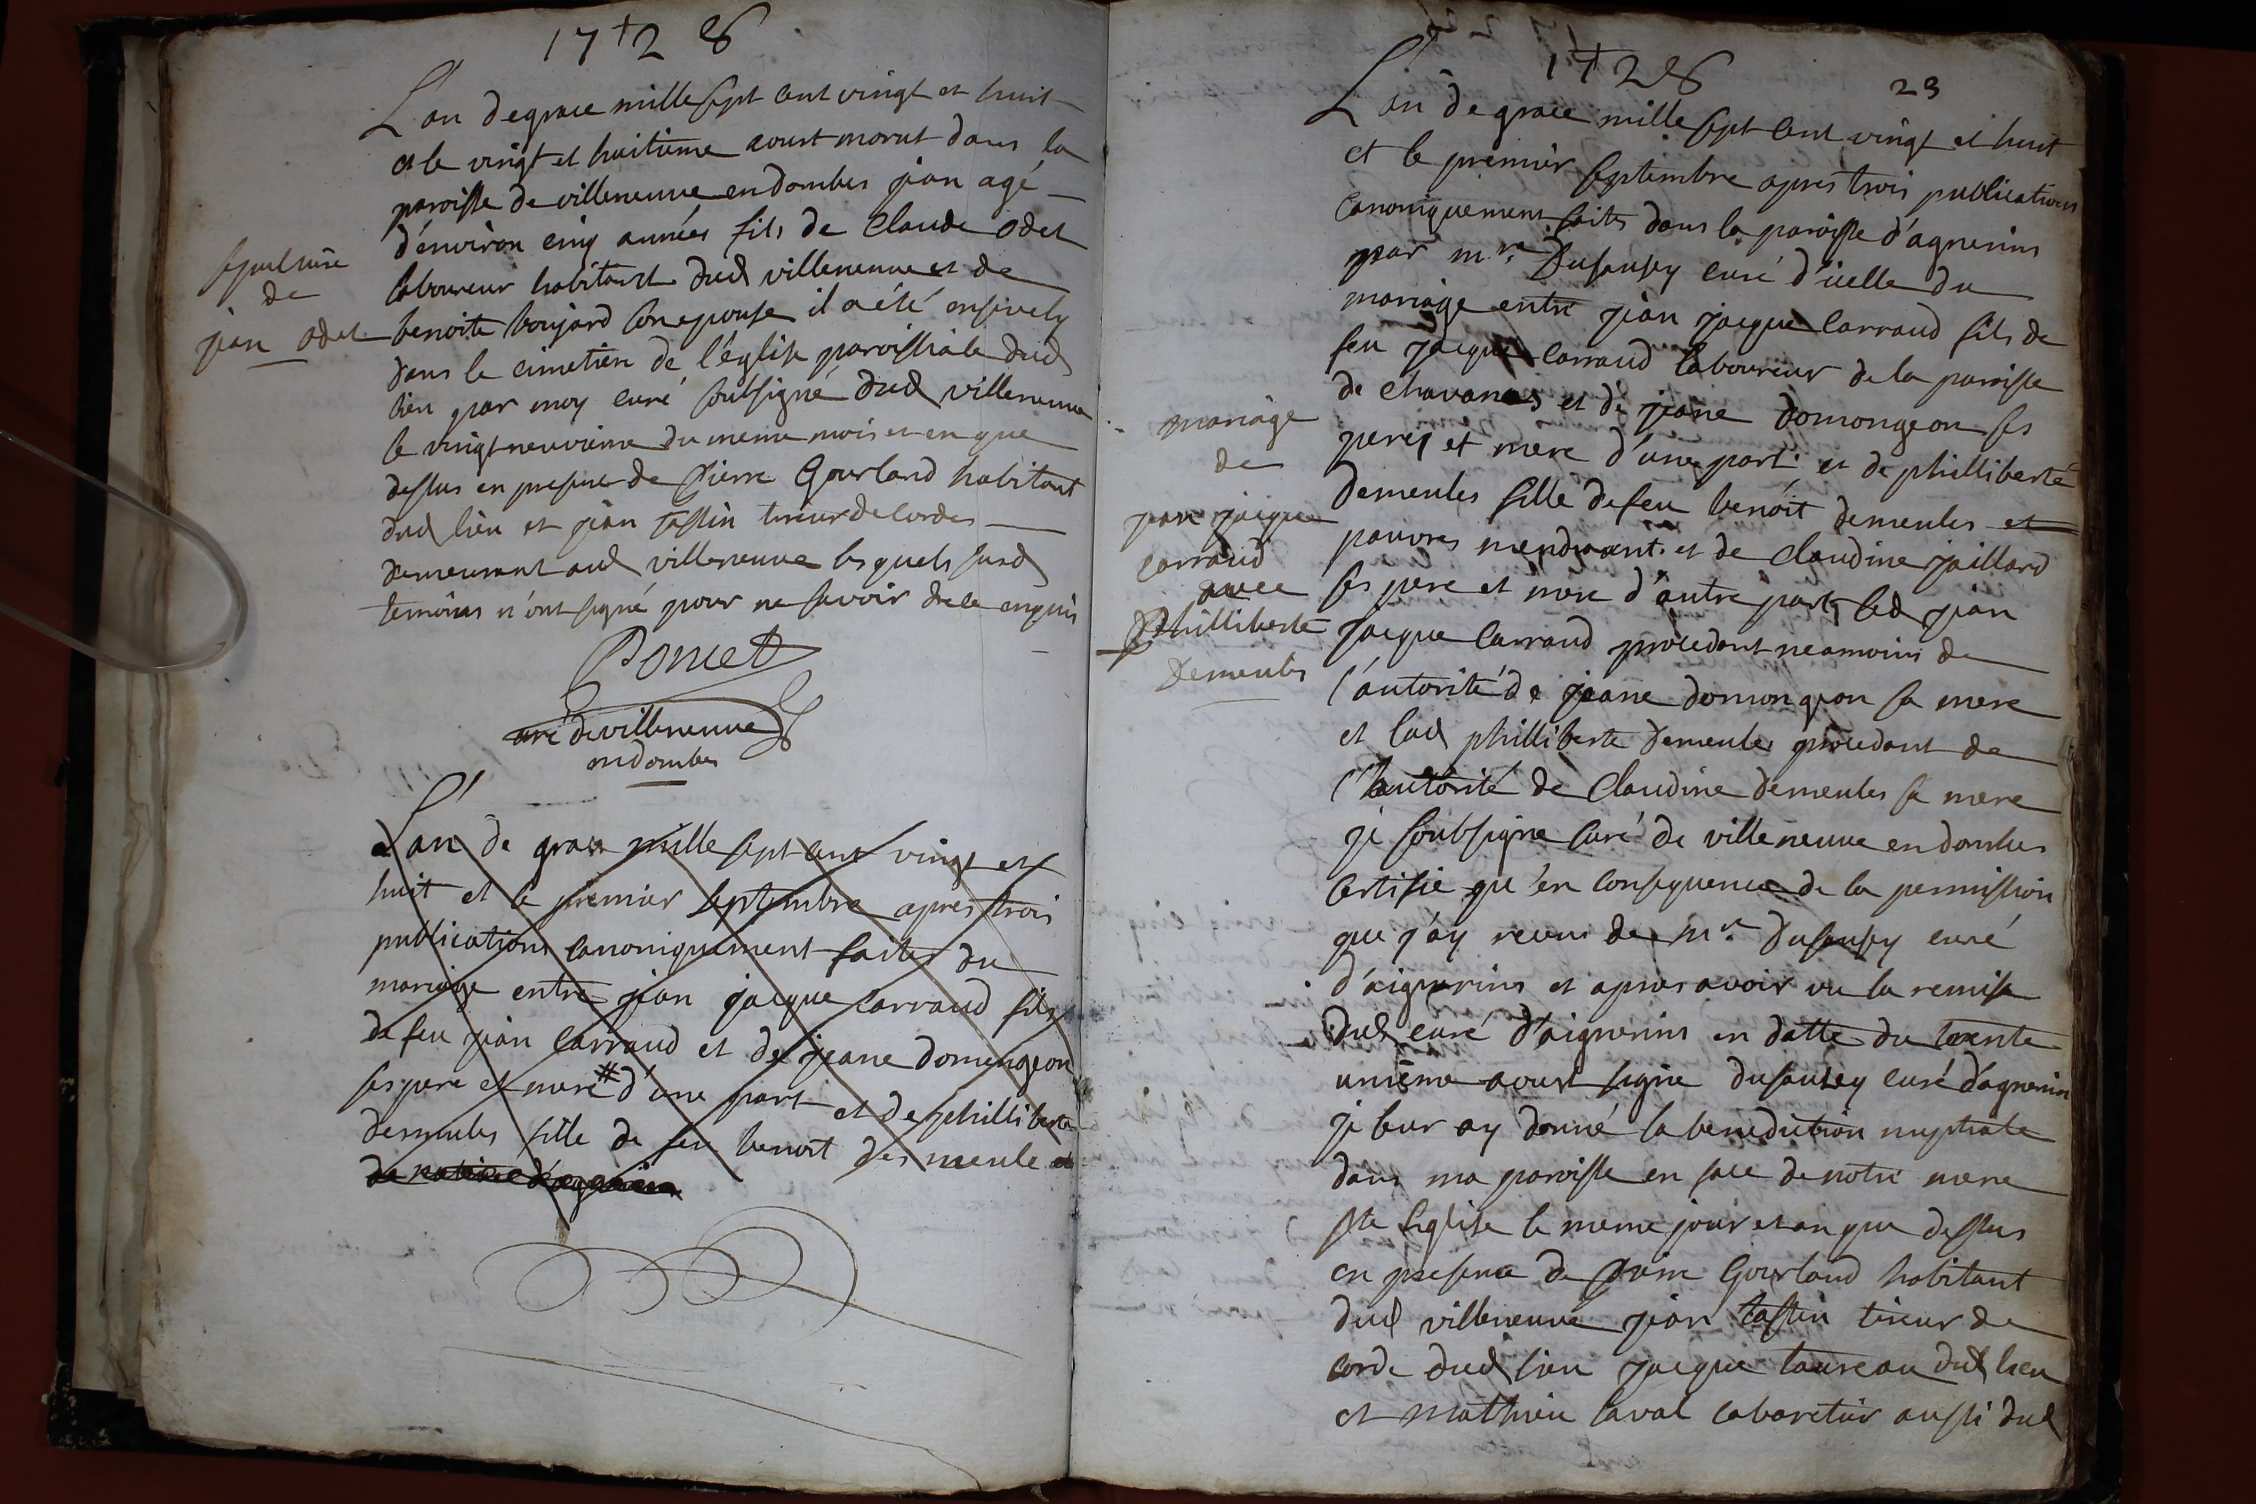 17+28
L'an de grace mille sept cent vingt et huit
et le vingt et huitieme aoust morut dans la
paroisse de villeneuve en dombes jean agé
d'environ cinq années fils de Claude odet
laboureur habitant dud villeneuve et de
benoite boujard son epouse il a été ensively
dans le cimetiere de l'église paroissiale dud
lieu par moy curé soubsigné dud villeneuve
le vingt neuvieme du meme mois et an que
dessus en presence de Pierre Gourland habitant
dud lieu et jean tastin tireur de cordes
demeurant aud villeneuve lesquels susd
temoins n'ont signé pour ne savoir de ce enquis
sepulture
de
jean odet
Poncet
curé de villeneuve
en dombes
L'an de grace mille sept cent vingt et
huit et le premier septembre apres trois
publications canoniquement faites du
mariage entre jean jacque Carraud fils
de feu jean Carraud et de jeane domengeon
ses pere et mere # d'une part et de philliberte
demeules fille de feu benoit des meule et
17+28
23
L'an de grace mille sept cent vingt et huit
et le premier septembre apres trois publications
canoniquement faites dans la paroisse d'agnerins
par mre Dusausey curé d'icelle du
mariage entre jean jacque Carraud fils de
feu jacque Carraud laboureur de la paroisse
de chavanes et de jeane domongeon ses
peres et mere d'une part et de philliberte
demeules fille de feu benoit demeules et
pauvres mendiants et de claudine jaillard
ses pere et mere d'autre part, led jean
jacque Carraud procedant neamoins de
l'autorité de jeane domongeon sa mere
et lad philliberte demeules procedant de
l'autorité de Claudine demeules sa mere
je soubsigne curé de villeneuve en dombes
certifie qu'en consequence de la permission
que j'ay receue de mre Dusausey curé
d'aignerins et apres avoir vu la remise
dud curé d'aignerins en datte du trente
unieme aoust signé dusausey curé d'agnerins
je leur ay donné la benediction nuptiale
dans ma paroisse en face de notre mere
ste Eglise le meme jour et an que dessus
en presence de Pierre Gourland habitant
dud villeneuve jean tastin tireur de
corde dud lieu jacque taureau dud lieu
et Mathieu Laval cabaretier aussi dud
mariage
de
jean jacque
carraud
avec
Philliberte
Demeules